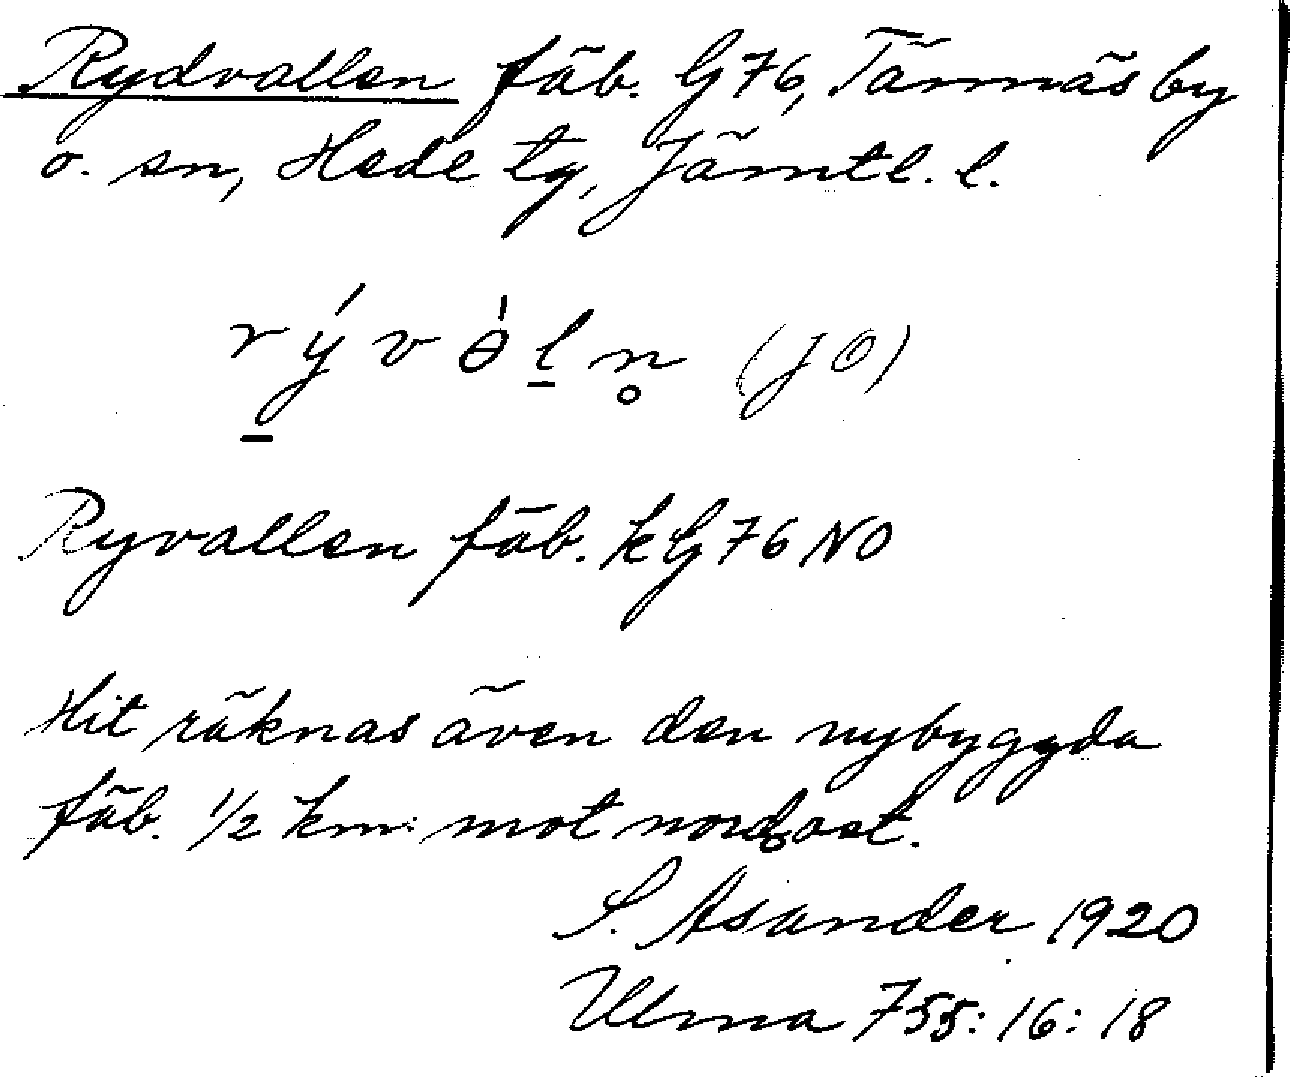 Rydvallen fäb. G76, Tännäs by
o. sn, Hede tg, Jämtl. l.
r ý̱ v ѳ̀ l̲ n̥ (JÖ)
Ryvallen fäb. k G76 NO
Hit räknas även den nybyggda
fäb. 1/2 km mot nordost.
S. Asander 1920
Ulma 755: 16: 18